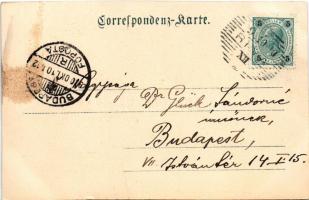 Correspondenz-Karte.
BUDAPEST
FŐPOSTA
Dr Glück Sándorné
úrnőnek,
Budapest,
VII István tér 14 I 15.